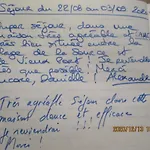 Séjour du 28/08 au 03/09 202
Super séjour, dans une
maison très agréable et
très bien située entre la
plage de la Source et
le Vieux Port ! Je reviendrai
dès que possible. Merci
encore, Danielle ! Alexandre
Très agréable séjour dans cette
maison douce et efficace
Je reviendrai !
Merci !
2020/12/13